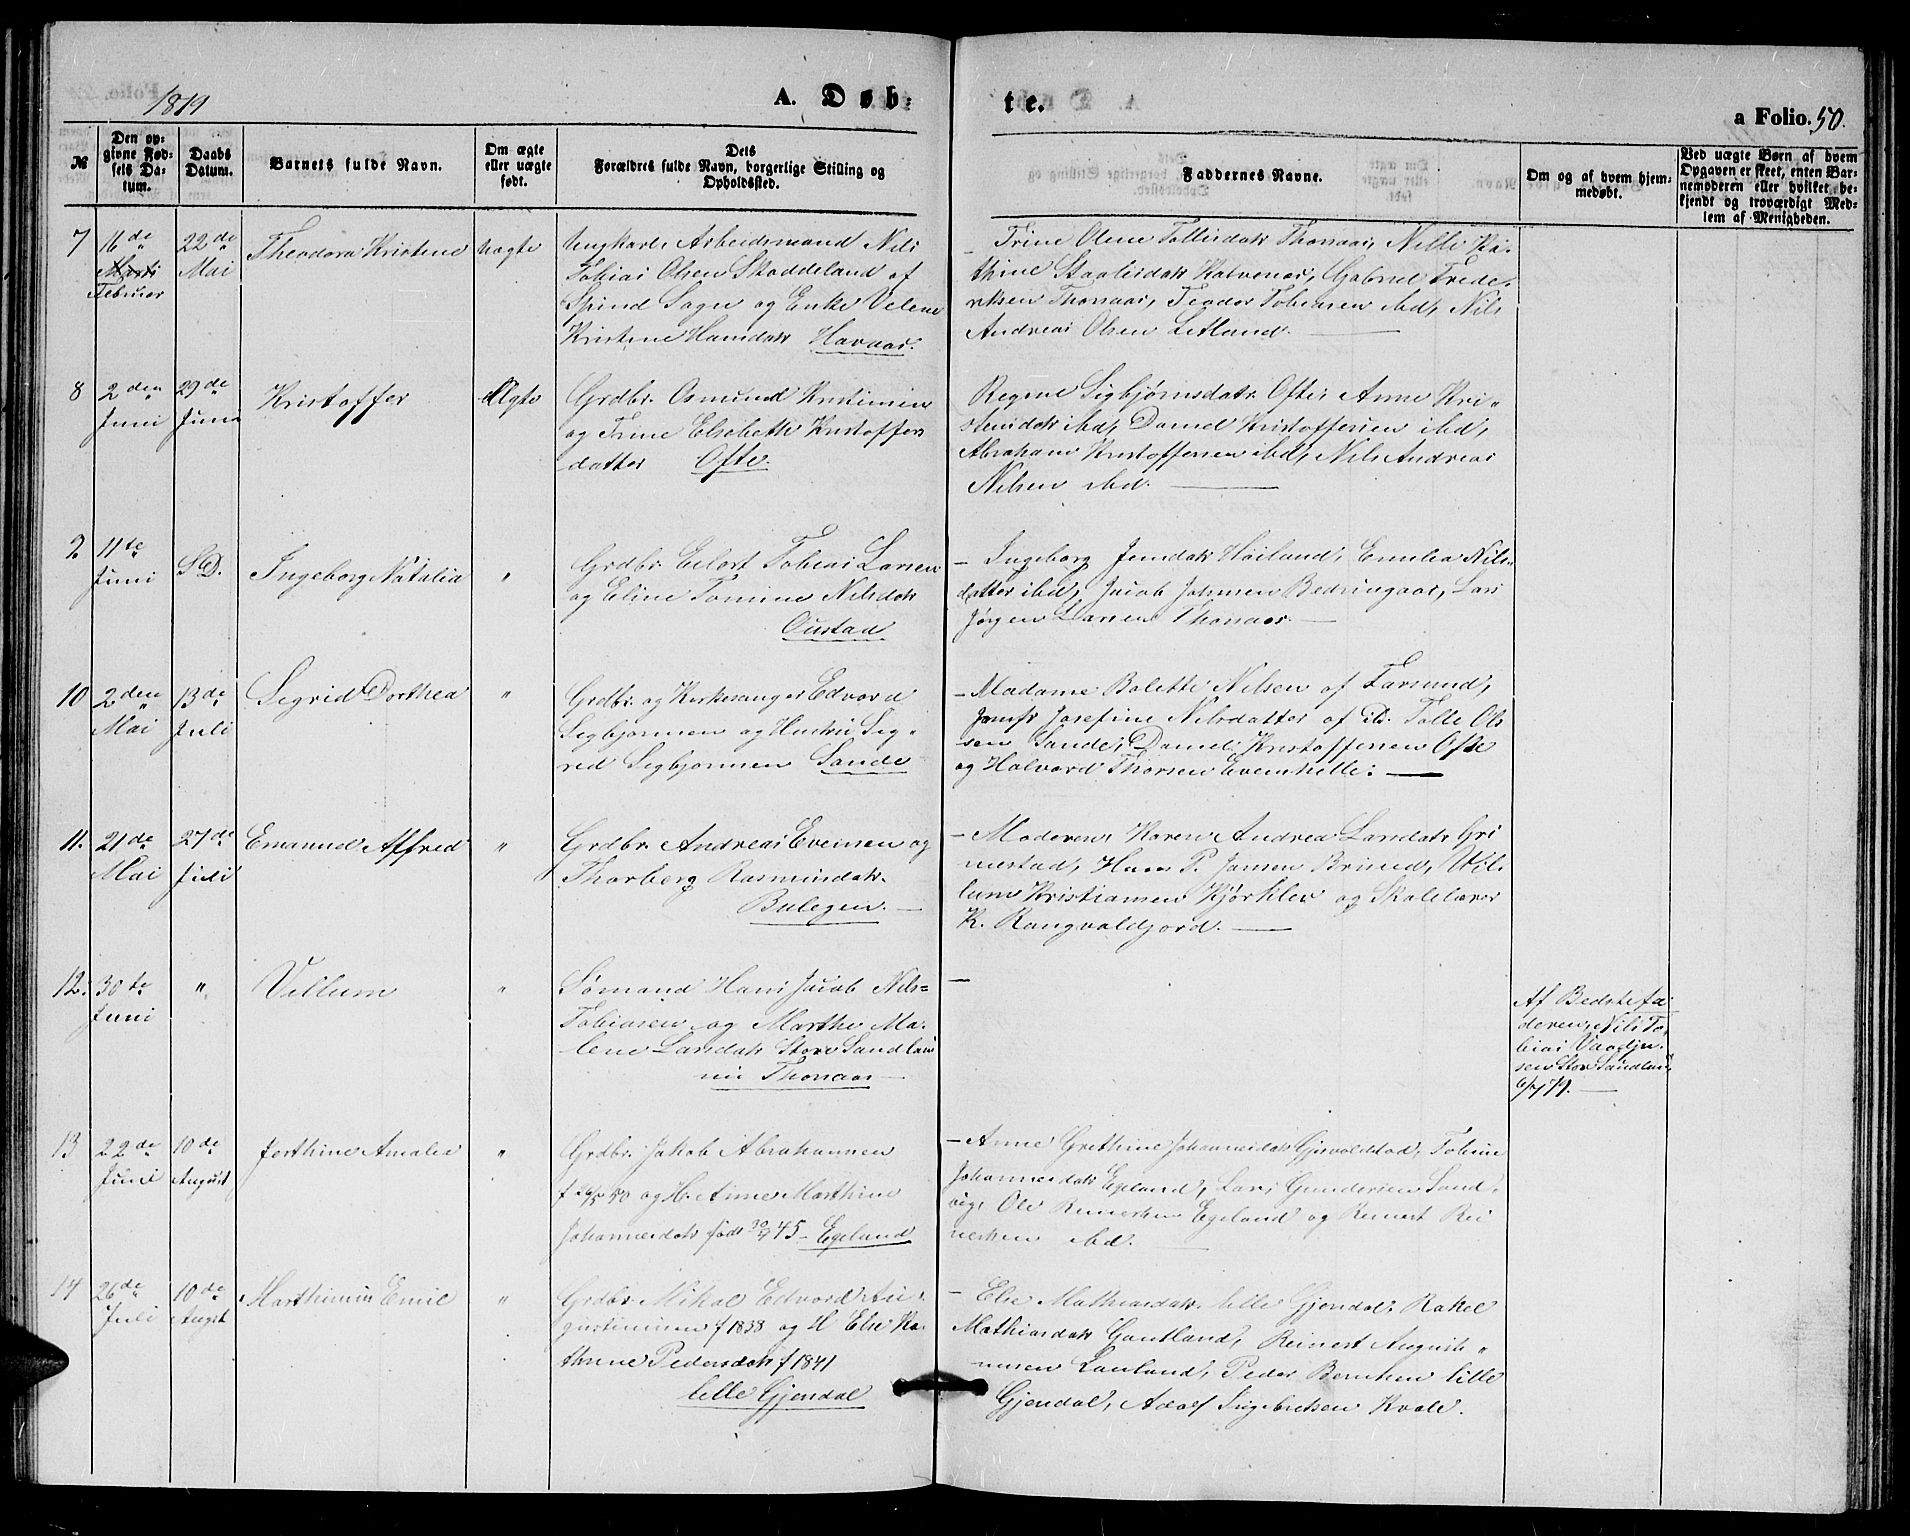 1879
A. Døb-
te.
a Folio. 50.
№
Den op-
givne Fød-
sels Da-
tum.
Daabs
Datum.
Barnets fulde Navn.
Om ægte
eller uægte
født.
Dets
Forældres fulde Navn, borgerlige Stilling og
Opholdssted.
Faddernes Navne.
Om og af hvem hjem-
medøbt.
Ved uægte Børn af hvem
Opgaven er skeet, enten Bar-
nemoderen eller hvilket be-
kjendt og troværdigt Med-
lem af Menigheden.
7
16de
Marts
Februar
22de
Mai
Theodora Kristene
Uægte
Ungkarl Arbeidsmand Nils
Tobias Olsen Skoddeland af
Spind Sogn og Enke Velene
Kristene Hansdatr Havaas.
- Trine Olene Tollisdatr Thonaas, Nille Ka-
thine Staalesdatr Kalvenes, Gabriel Frede-
riksen Thonaas, Teodor Tobiasen ibd, Nils
Andreas Olsen Letland.
8
2den
Juni
29de
Juni
Kristoffer
Ægte
Grdbr. Osmund Kristensen
og Trine Elsebeth Kristoffers
datter Ofte.
Regine Sigbjørnsdatr Ofte, Anne Kri-
stensdatr ibd, Daniel Kristoffersen ibd,
Abraham Kristoffersen ibd, Nils Andreas
Nilsen ibd.
2
11te
Juni
S.D.
Ingeborg Natalia
"
Grdbr. Eilert Tobias Larsen
og Eline Tomine Nilsdatr
Oustad
- Ingeborg Jensdatr Høiland, Emilia Nils-
datter ibd, Jacob Johnsen Bedringaas, Lars
Jørgen Larsen Thonaas.
10
2den
Mai
13de
Juli
Sigrid Dorthea
"
Grdbr. og Kirkesanger Edvard
Sigbjørnsen og Hustru Sig-
rid Sigbjørnsen Sande
- Madame Boletti Nilsen af Farsund,
Jomfr Josefine Nilsdatter af do. Tolle Ol-
sen Sande, Daniel Kristoffersen Ofte
og Halvord Thorsen Evenshelle.
11.
21de
Mai
27de
Juli
Emanuel Alfred
"
Grdbr. Andreas Evensen og
Thorborg Rasmusdatr.
Bulegen.
- Moderen, Karen Andrea Larsdatr Gri-
mestad, Hans P. Jansen Briseid, Vil-
lum Kristiansen Kjørklev og Skolelærer
K. Rangvaldjord.
12.
30te
Juni
"
Villum
"
Sømand Hans Jacob Nils-
Tobiasen og Marthe Ma-
lene Larsdatr Store Sandland
nu Thonaas
-
Af Bedstefa-
deren, Nils To-
bias Vaaljn-
sen Store Sandland,
6/7 79.
13
22de
Juni
10de
August
Jorthine Amalie
"
Grdbr. Jakob Abrahamsen
f 26/5 50 og H. Anne Marthine
Johannesdatr født 30/7 45 - Egeland
- Anne Grethine Johannesdatr Gjervoldstad, Tobine
Johannesdatr Egeland, Lars Gundersen Sand-
vig, Ole Reinertsen Egeland og Reinert Rei-
nertsen ibd.
14
26de
Juli
10de
Augst
Marthinius Emil
"
Grdbr. Mikal Edvard Au-
gustinusen f 1838 og H Else Ka-
thrine Pedersdatr f 1841
lille Gjendal
- Else Mathiasdatr. lille Gjendal, Rakel
Mathiasdatr Gautland, Reinert Augusti-
nusen Lauland, Peder Berntsen lille
Gjendal, Adolf Ingebretsen Kvale.